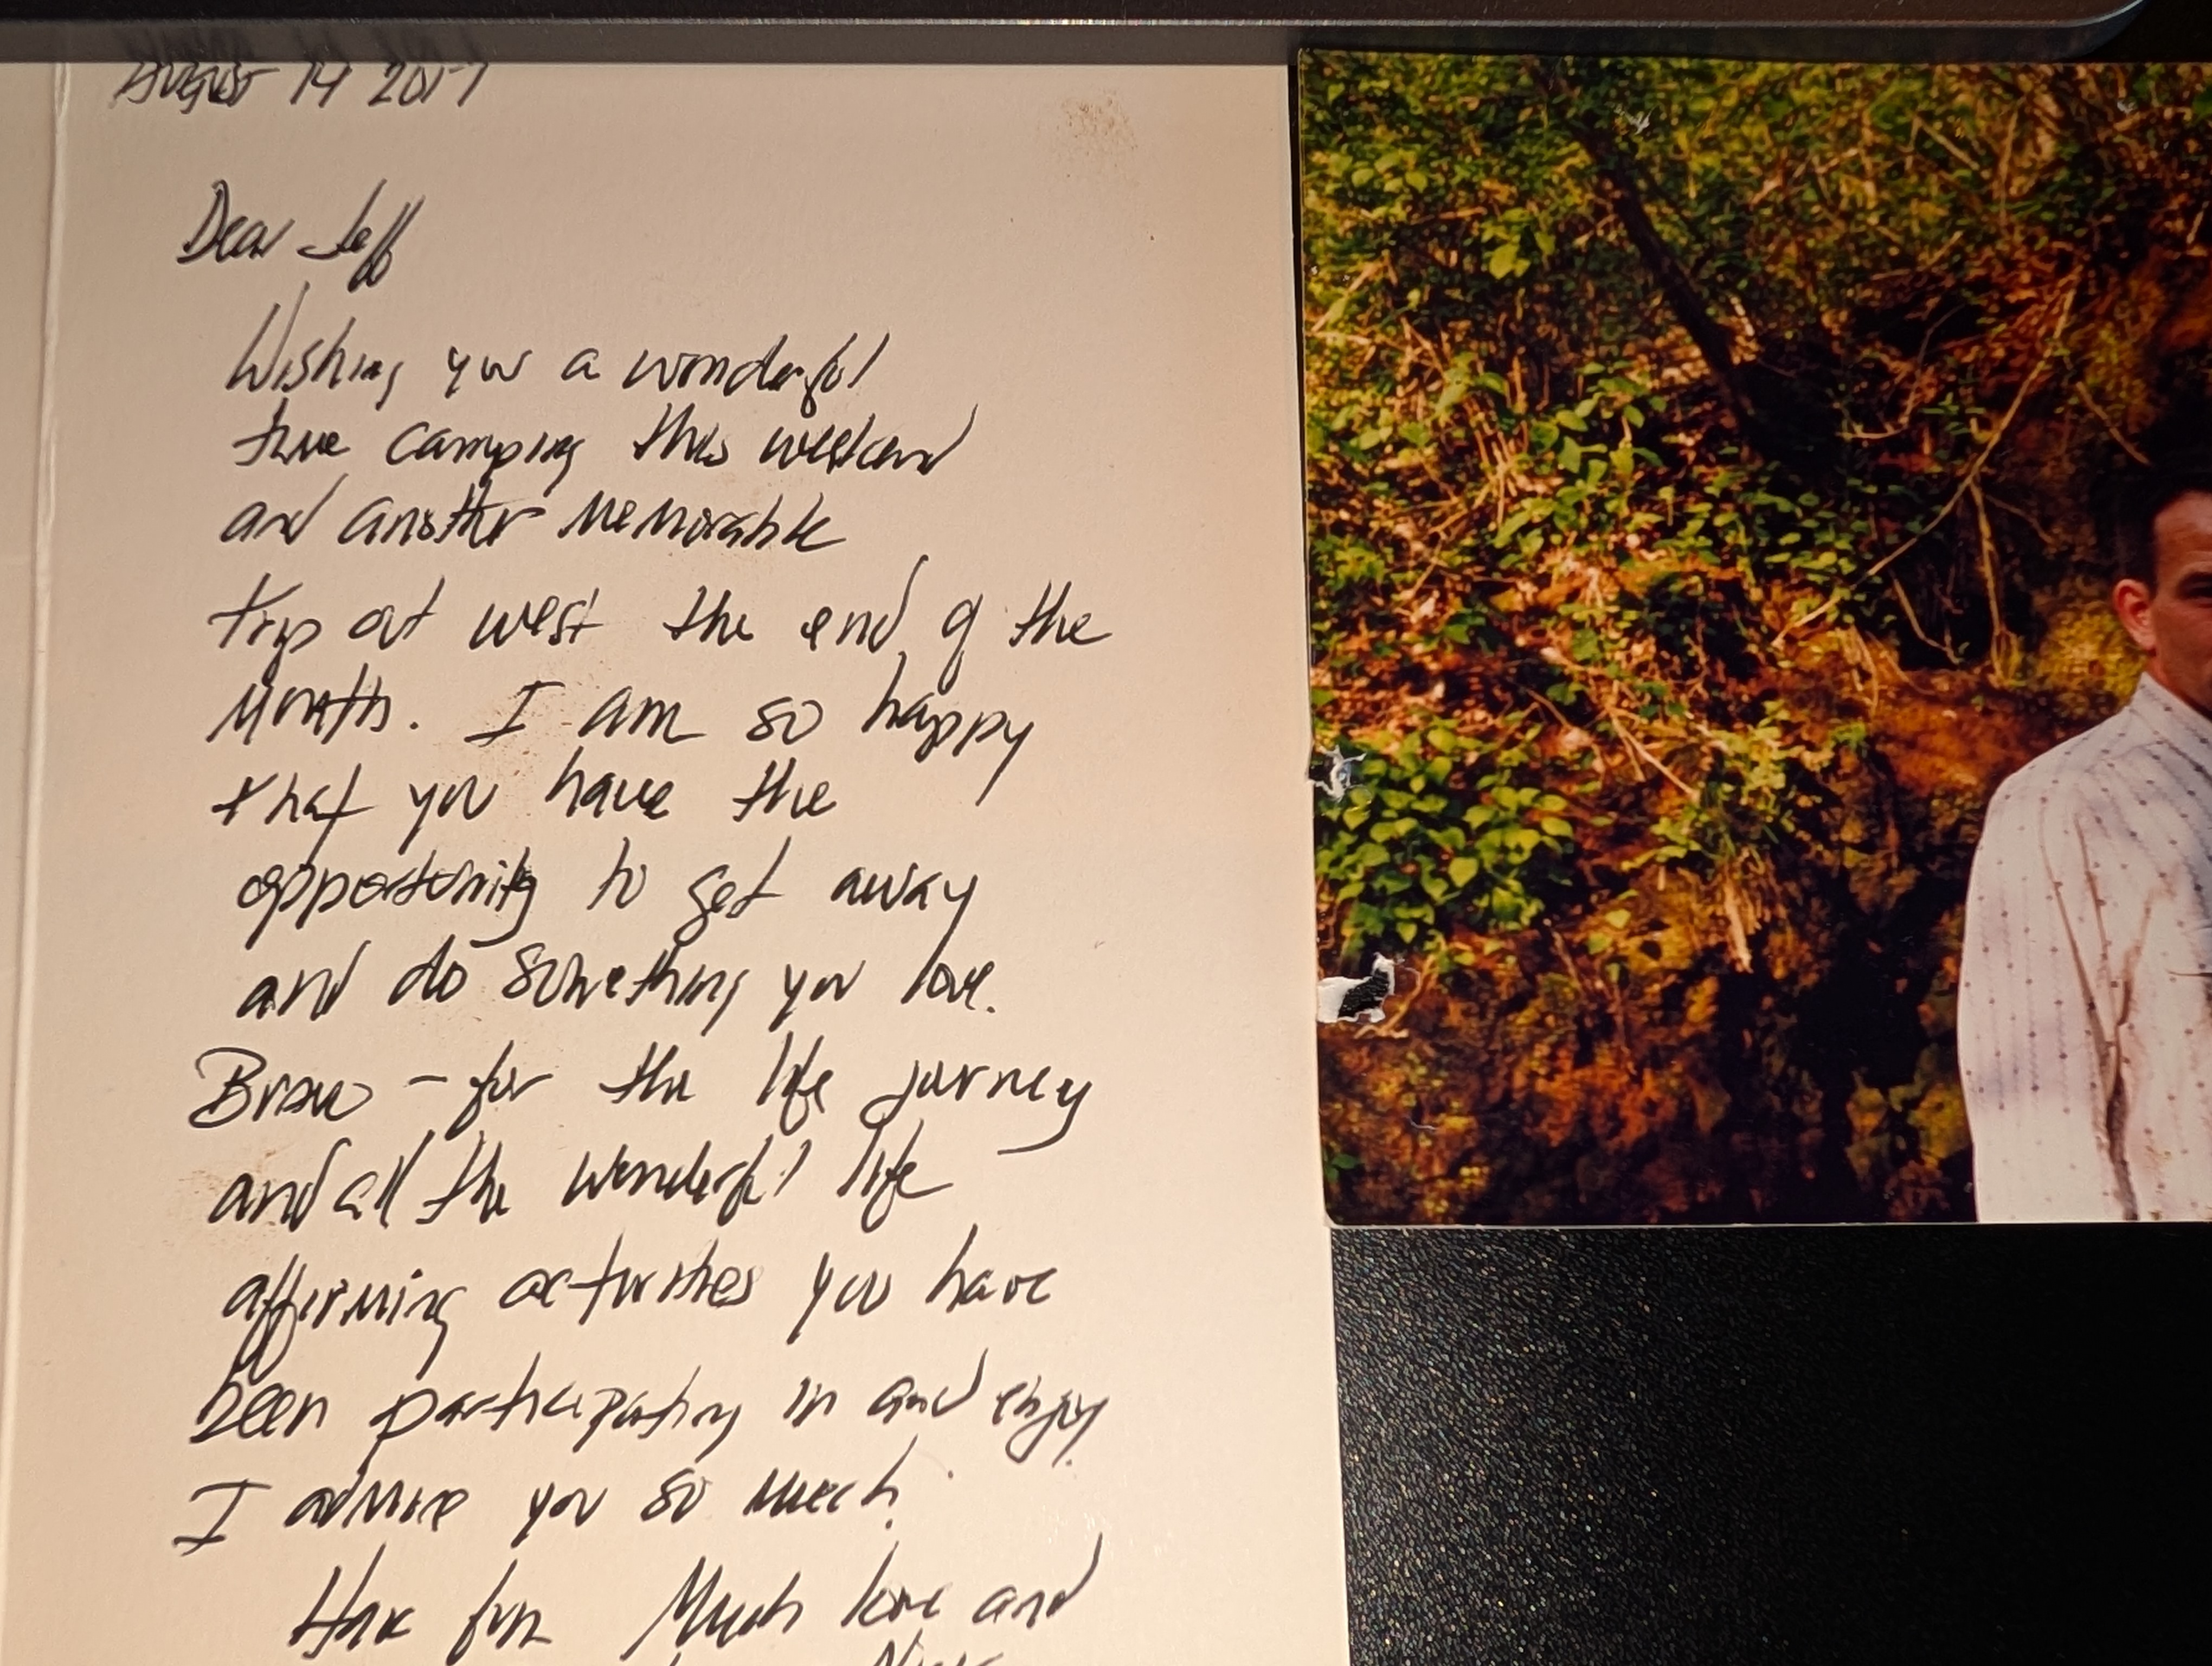 August 14 2017
Dear Jeff
Wishing you a wonderful
time camping this weekend
and another memorable
trip out west the end of the
month. I am so happy
that you have the
opportunity to get away
and do something you love.
Bravo - for the life journey
and all the wonderful life
affirming activities you have
been participating in and enjoy.
I admire you so much.
Have fun Much love and